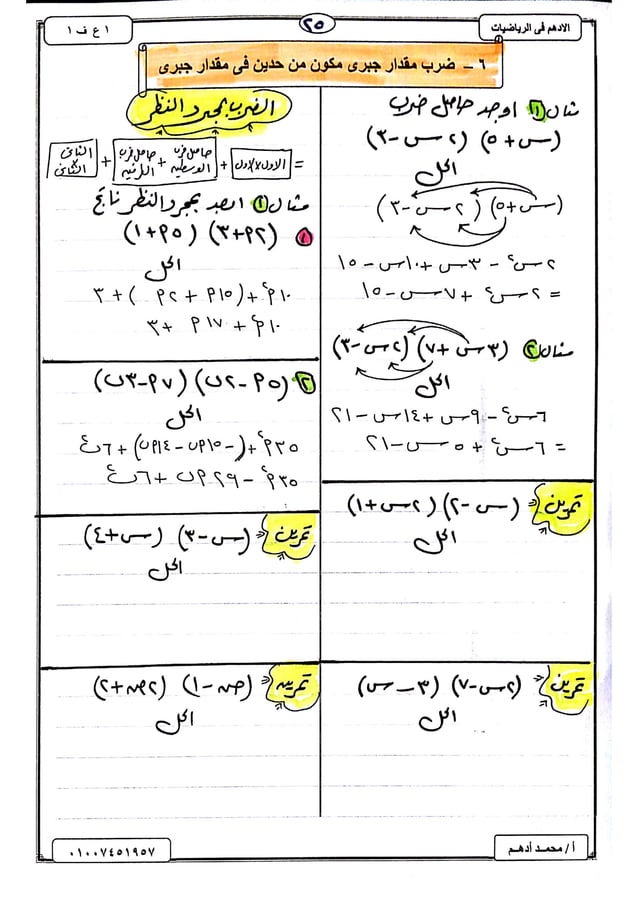 الادهم فى الرياضيات
٢٥
١ ع ف ١
٦ – ضرب مقدار جبرى مكون من حدين فى مقدار جبرى
مثال ١ اوجد حاصل ضرب
(س+٥) (٢س-٣)
الحل
(س+٥) (٢س-٣)
٢س² - ٣س + ١٠س - ١٥
= ٢س² + ٧س - ١٥
مثال ٢ (٣س+٧) (٢س-٣)
الحل
٦س² - ٩س + ١٤س - ٢١
= ٦س² + ٥س - ٢١
تمرين (س-٢) (٢س+١)
الحل
تمرين (٢س-٧) (٣-س)
الحل
الضرب بمجرد النظر
= الاول×الاول + حاصل ضرب الوسطين + حاصل ضرب الطرفين + الثانى × الثانى
مثال ١ اوجد بمجرد النظر ناتج
١ (٢م+٣) (٥م+١)
الحل
١٠م² + (١٥م + ٢م) + ٣
١٠م² + ١٧م + ٣
٢ (٥م-٢ن) (٧م-٣ن)
الحل
٣٥م² + (-١٥من - ١٤من) + ٦ن²
٣٥م² - ٢٩من + ٦ن²
تمرين (س-٣) (س+٤)
الحل
تمرين (ص-١) (٢ص+٢)
الحل
أ/ محمد أدهم
٠١٠٠٧٤٥١٩٥٧